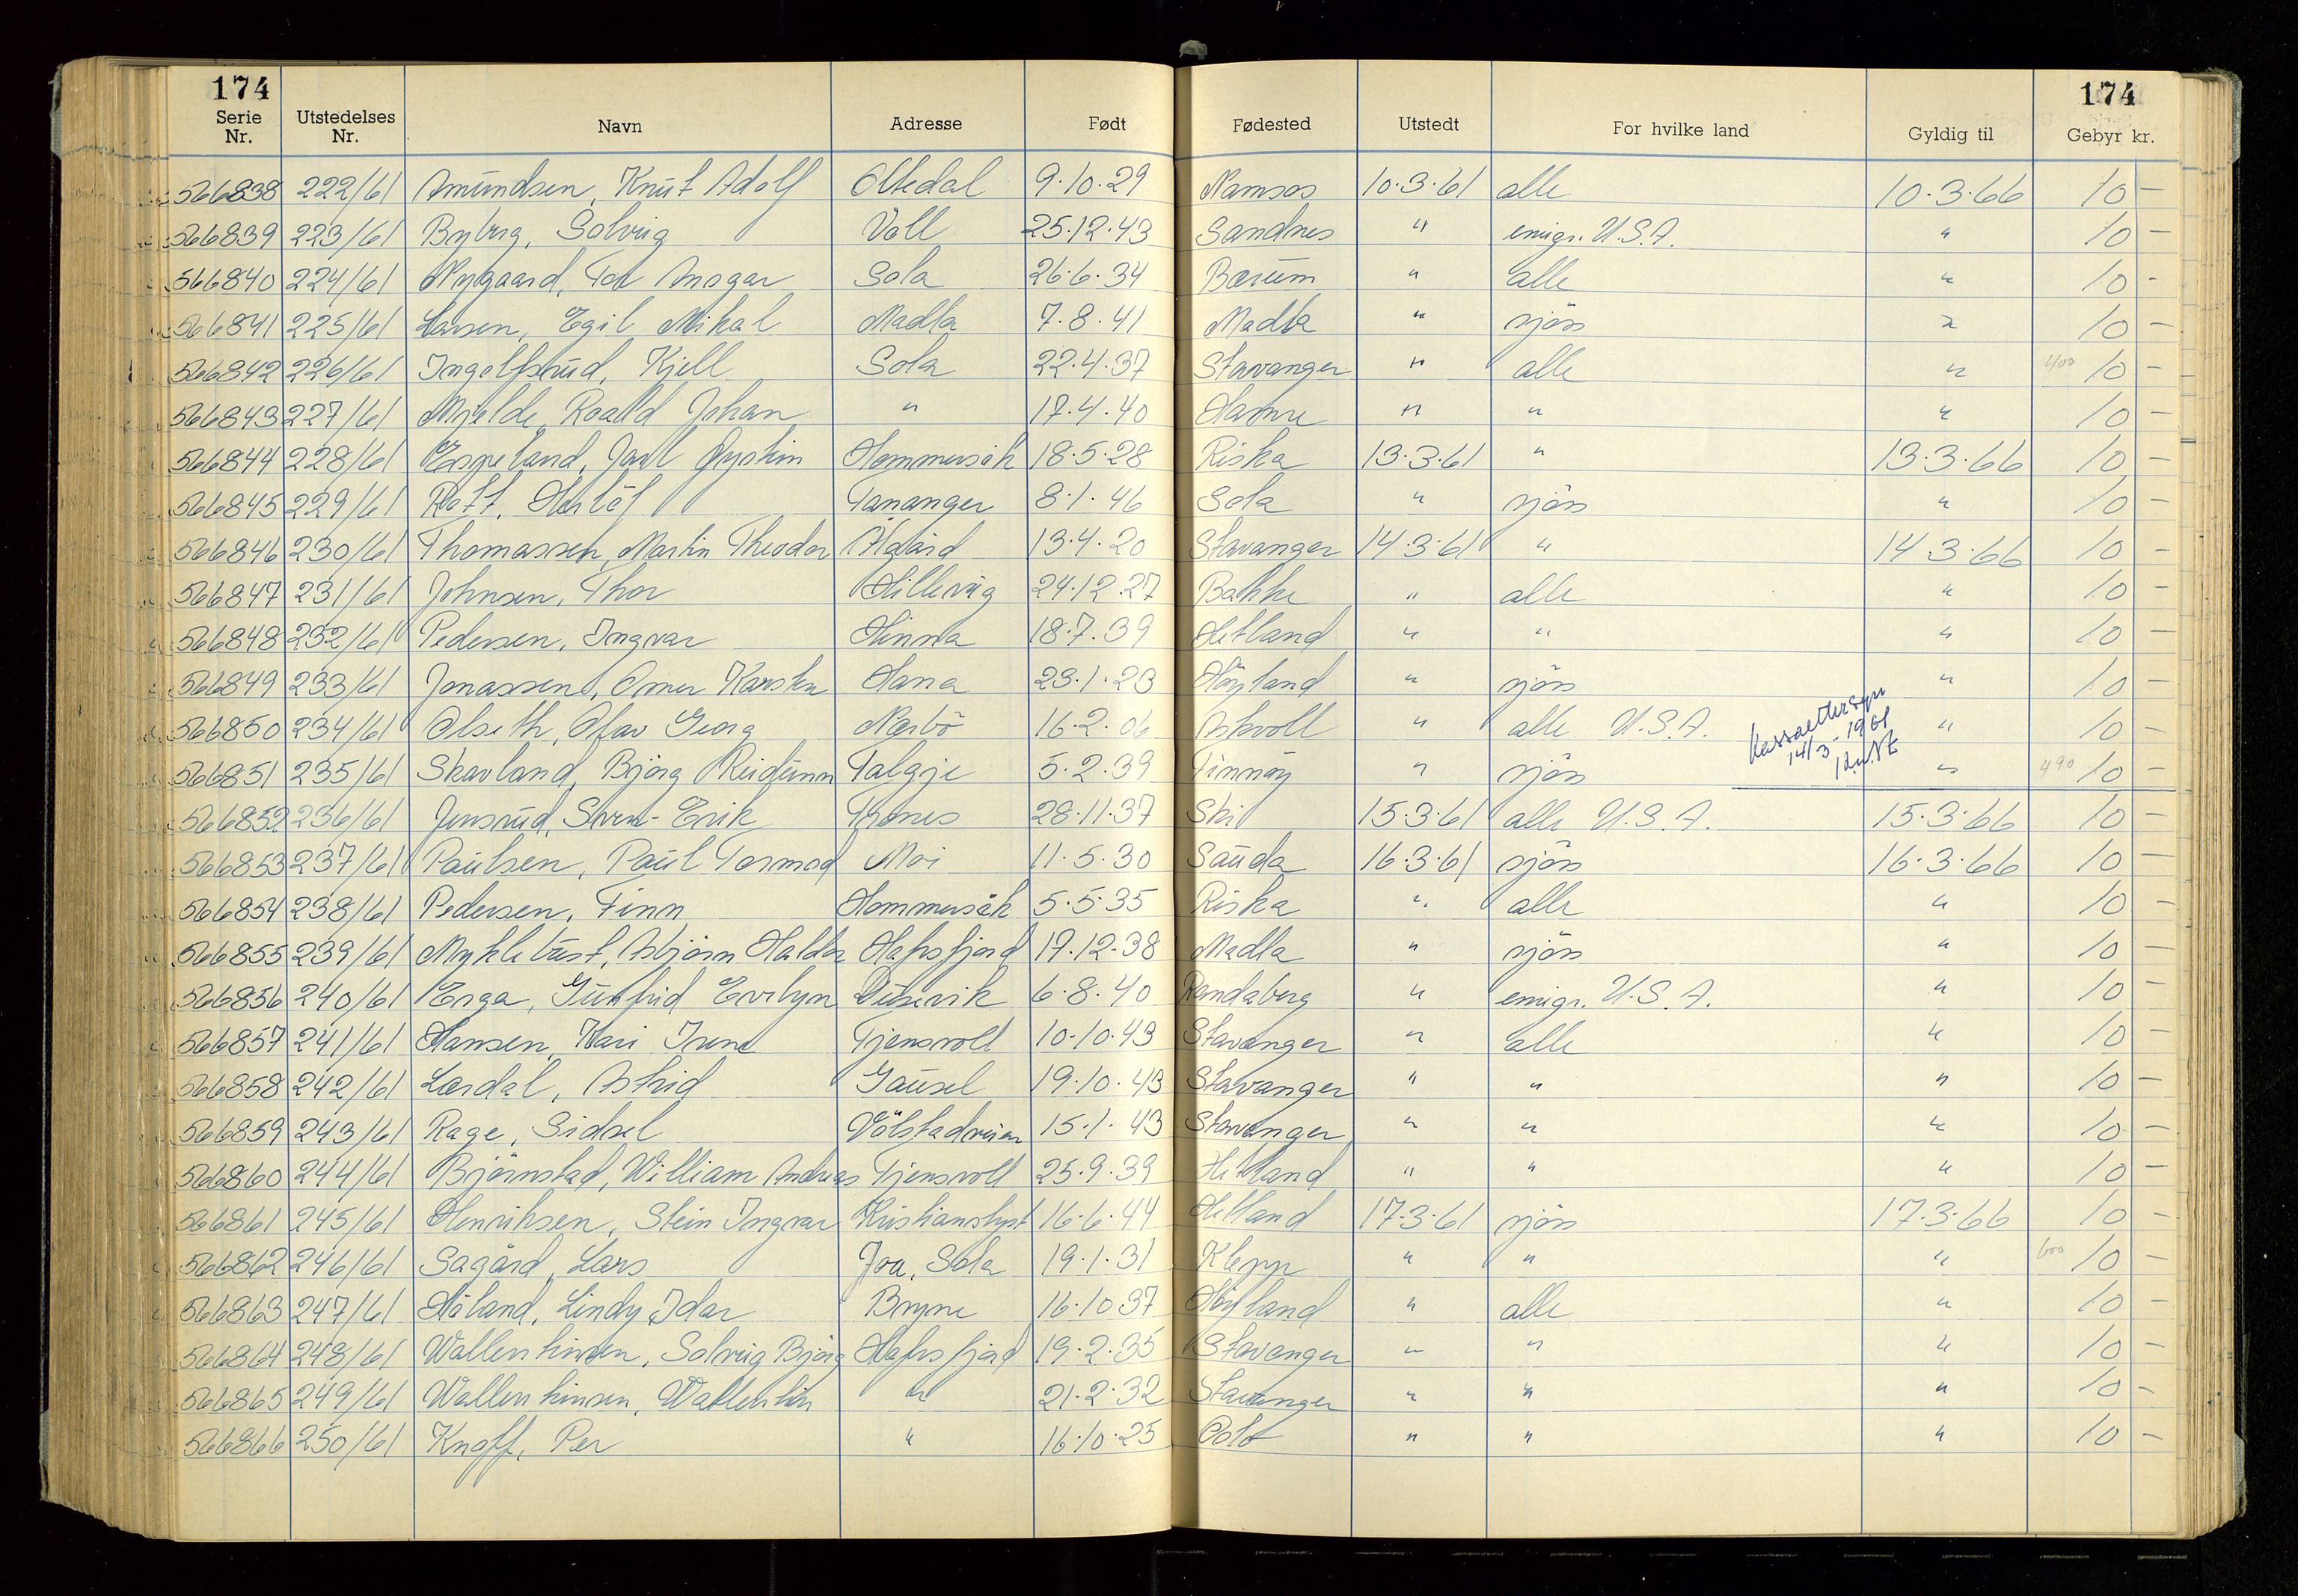 174 174
Serie Nr. Utstedelses Nr. Navn Adresse Født Fødested Utstedt For hvilke land Gyldig til Gebyr kr.
566838 222/61 Amundsen, Knut Adolf Oltedal 9.10.29 Namsos 10.3.61 alle 10.3.66 10 -
566839 223/61 Byberg, Solveig Voll 25.12.43 Sandnes " emigr. U.S.A. " 10 -
566840 224/61 Nygaard, Tor Ansgar Sola 26.6.34 Bærum " alle " 10 -
566841 225/61 Larsen, Egil Mikal Madla 7.8.41 Madla " sjøs " 10 -
566842 226/61 Ingolfsrud, Kjell Sola 22.4.37 Stavanger " alle " 400 10 -
566843 227/61 Mjelde, Roald Johan " 17.4.40 Hamre " " " 10 -
566844 228/61 Espeland, Jarl Øystein Hommersåk 18.5.28 Riska 13.3.61 " 13.3.66 10 -
566845 229/61 Rott, Herlöf Tananger 8.1.46 Sola " sjøs " 10 -
566846 230/61 Thomassen, Martin Theodor Ålgård 13.4.20 Stavanger 14.3.61 " 14.3.66 10 -
566847 231/61 Johnsen, Thor Hillevåg 24.12.27 Bakke " alle " 10 -
566848 232/61 Pedersen, Ingvar Hinna 18.7.39 Hetland " " " 10 -
566849 233/61 Jonassen, Omer Karsten Hana 23.1.23 Höyland " sjøs " 10 -
566850 234/61 Olseth, Olav Georg Nærbö 16.2.06 Askvoll " alle U.S.A. " 10 -
Kassaettersyn
14/3-1961
566851 235/61 Skavland, Bjørg Reidunn Talgje 5.2.39 Finnöy " sjøs " 490 10 -
566852 236/61 Jensrud, Svein-Erik Thones 28.11.37 Ski 15.3.61 alle U.S.A. 15.3.66 10 -
566853 237/61 Paulsen, Paul Tormod Moi 11.5.30 Sauda 16.3.61 sjøs 16.3.66 10 -
566854 238/61 Pedersen, Finn Hommersåk 5.5.35 Riska " alle " 10 -
566855 239/61 Myklebust, Asbjørn Haldor Hafrsfjord 17.12.38 Madla " sjøs " 10 -
566856 240/61 Erga, Gunfrid Evelyn Dusevik 6.8.40 Randaberg " emigr. U.S.A. " 10 -
566857 241/61 Hansen, Kari Irene Tjensvoll 10.10.43 Stavanger " alle " 10 -
566858 242/61 Lærdal, Astrid Gausel 19.10.43 Stavanger " " " 10 -
566859 243/61 Rage, Sidsel Völstadveien 15.1.43 Stavanger " " " 10 -
566860 244/61 Bjørnstad, William Andreas Tjensvoll 25.9.39 Hetland " " " 10 -
566861 245/61 Henriksen, Stein Ingvar Kristianslyst 16.6.44 Hetland 17.3.61 sjøs 17.3.66 10 -
566862 246/61 Sagård, Lars Joa, Sola 19.1.31 Klepp " " " 600 10 -
566863 247/61 Håland, Lindy Idar Bryne 16.10.37 Höyland " alle " 10 -
566864 248/61 Wallentinsen, Solveig Bjørg Hafrsfjord 19.2.35 Stavanger " " " 10 -
566865 249/61 Wallentinsen, Wallentin " 21.2.32 Stavanger " " " 10 -
566866 250/61 Knoff, Per " 16.10.25 Oslo " " " 10 -